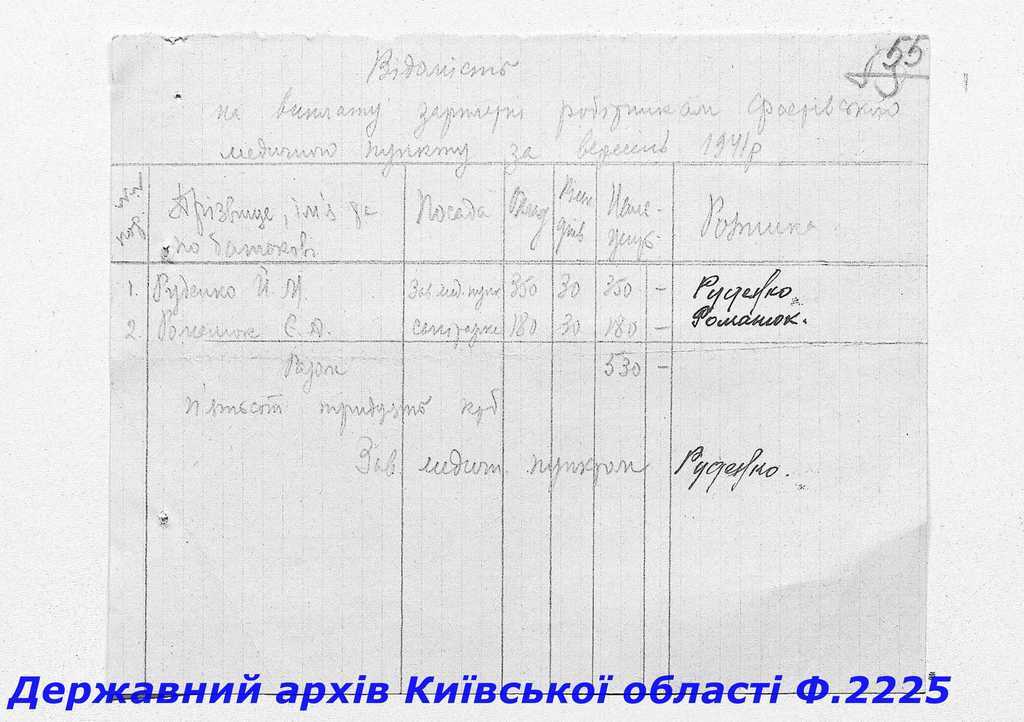 55
Відомість
на виплату зарплати робітникам Фастівського
медичного пункту за вересень 1941р
Прізвище, ім'я та по батькові Посада Оклад днів Розписка
1. Руденко Й. М. Зав. мед. пунк 350 30 350 - Руденко
2. Романюк Є. Д. санітарка 180 30 180 - Романюк.
Разом 530 -
п'ятсот тридцять крб
Зав. медичн. пунктом Руденко.
Державний архів Київської області Ф.2225